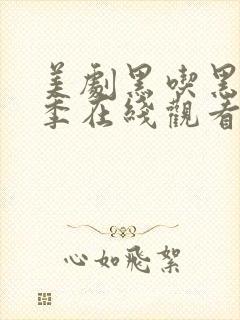 美劇黑喫黑
季在綫觀看
心如飛絮